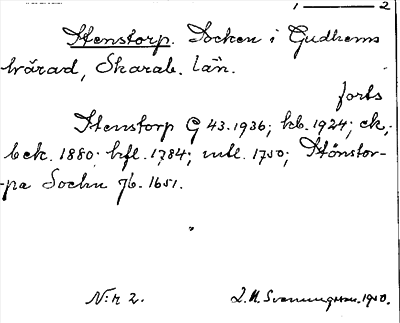 1 — 2
Stenstorp. Socken i Gudhems
härad, Skarab. län.
forts
Stenstorp G 43.1936; kb. 1924; ek,
bek. 1880; hfl. 1784; mtl. 1750; Stönstor-
-pa Sochn Jb. 1651.
N:r 2.
1950.